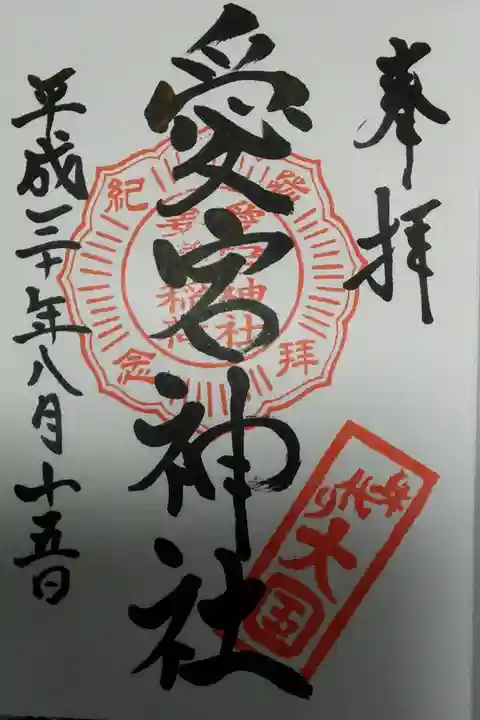 奉拝
愛宕神社
平成三十年八月十五日
登拝
紀念
愛宕神社
大国